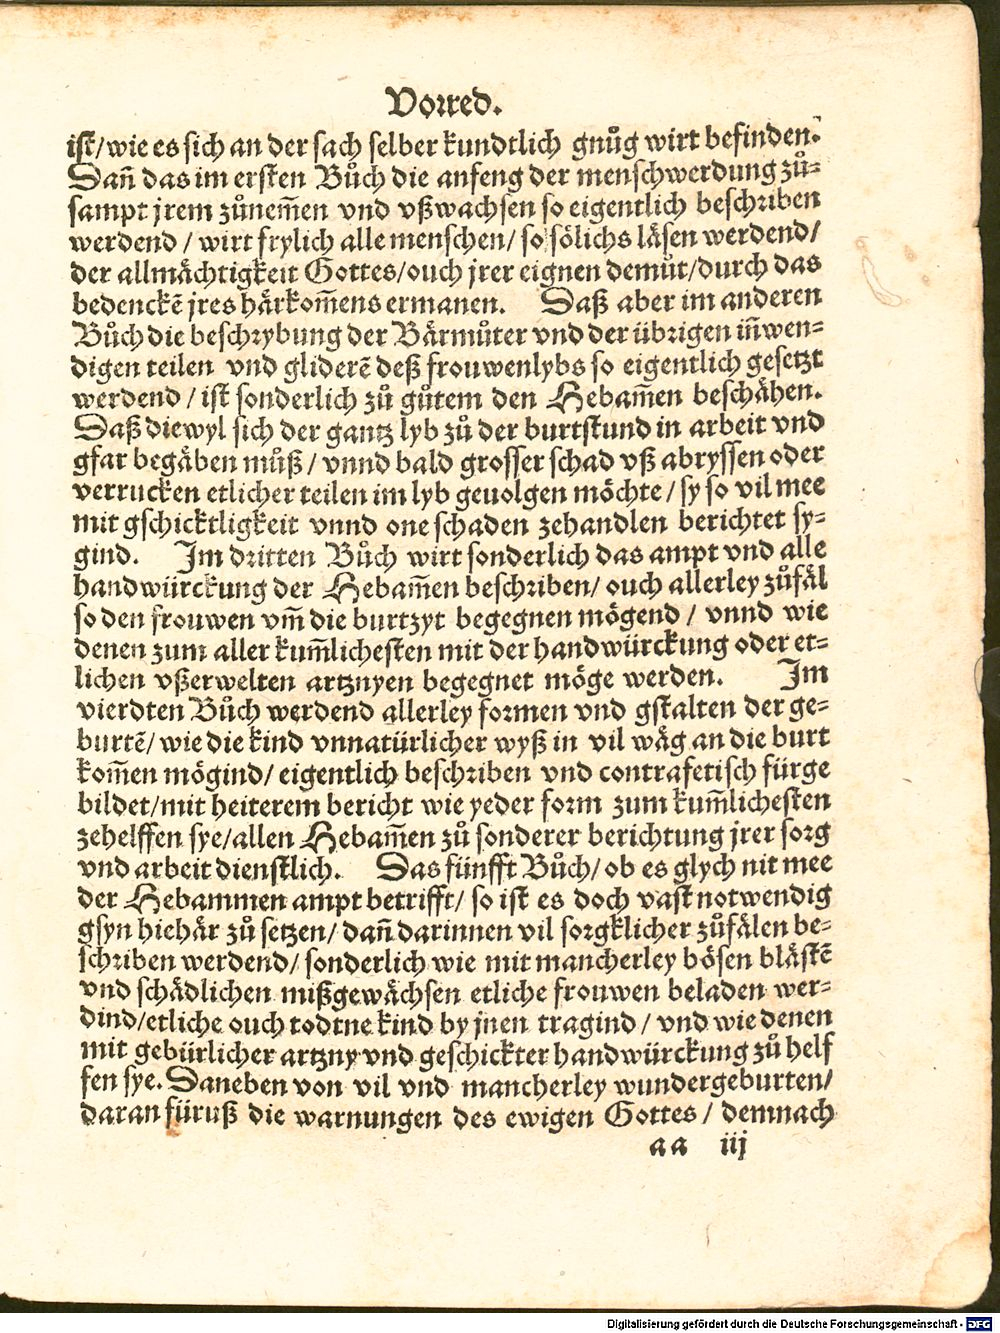 Vorred.
ist/ wie es sich an der sach selber kundtlich gnůg wirt befinden.
Dañ das im ersten Bůch die anfeng der menschwerdung zů-
sampt jrem zůnem̃en vnd vßwachsen so eigentlich beschriben
werdend / wirt frylich alle menschen/ so sölichs läsen werdend/
der allmächtigkeit Gottes/ ouch jrer eignen demůt/ durch das
bedenckẽ jres härkom̃ens ermanen. Daß aber im anderen
Bůch die beschrybung der Bärmůter vnd der übrigen iñwen-
digen teilen vnd gliderẽ deß frouwenlybs so eigentlich gesetzt
werdend / ist sonderlich zů gůtem den Hebam̃en beschähen.
Daß diewyl sich der gantz lyb zů der burtstund in arbeit vnd
gfar begäben můß / vnnd bald grosser schad vß abryssen oder
verrucken etlicher teilen im lyb geuolgen möchte / sy so vil mee
mit gschicktligkeit vnnd one schaden zehandlen berichtet sy-
gind. Im dritten Bůch wirt sonderlich das ampt vnd alle
handwürckung der Hebam̃en beschriben/ ouch allerley zůfäl
so den frouwen vm̃ die burtzyt begegnen mögend / vnnd wie
denen zum aller kum̃lichesten mit der handwürckung oder et-
lichen vßerwelten artznyen begegnet möge werden. Im
vierdten Bůch werdend allerley formen vnd gstalten der ge-
burtẽ/ wie die kind vnnatürlicher wyß in vil wäg an die burt
kom̃en mögind/ eigentlich beschriben vnd contrafetisch fürge
bildet/ mit heiterem bericht wie yeder form zum kum̃lichesten
zehelffen sye/ allen Hebam̃en zů sonderer berichtung jrer sorg
vnd arbeit dienstlich. Das fünfft Bůch/ ob es glych nit mee
der Hebammen ampt betrifft/ so ist es doch vast notwendig
gsyn hiehär zů setzen/ dañ darinnen vil sorgklicher zůfälen be-
schriben werdend/ sonderlich wie mit mancherley bösen blästẽ
vnd schädlichen mißgewächsen etliche frouwen beladen wer-
dind/ etliche ouch todtne kind by jnen tragind / vnd wie denen
mit gebürlicher artzny vnd geschickter handwürckung zů helf
fen sye. Daneben von vil vnd mancherley wundergeburten/
daran füruß die warnungen des ewigen Gottes / demnach
aa iij
Digitalisierung gefördert durch die Deutsche Forschungsgemeinschaft - DFG